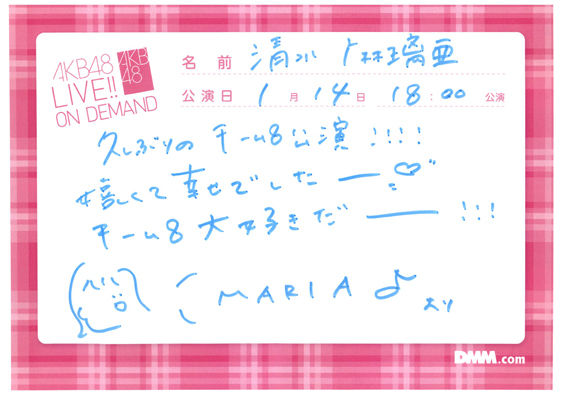 AKB48
LIVE!!
ON DEMAND
AKB
48
名前 清水 麻璃亜
公演日 1月14日 18:00 公演
久しぶりのチーム8公演!!!!
嬉しくて幸せでしたー♡
チーム8大好きだー!!!
MARIA♪より
DMM.com